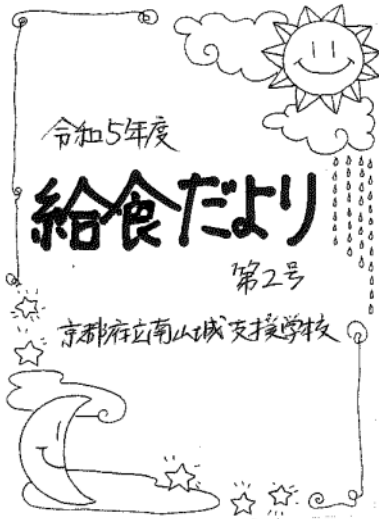 令和5年度
給食だより
第2号
京都府立南山城支援学校